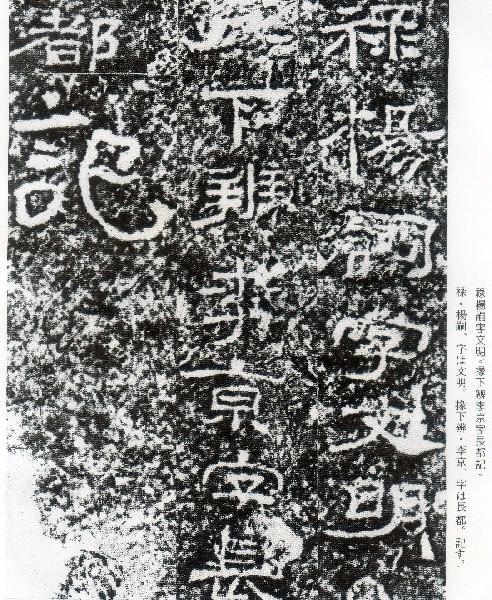 祿楊嗣字文明。掾下辨李京字長都記。
祿・楊嗣、字は文明。掾下辨・李京、字は長都。記す。
祿楊嗣字文明
掾下辨李京字長
都記